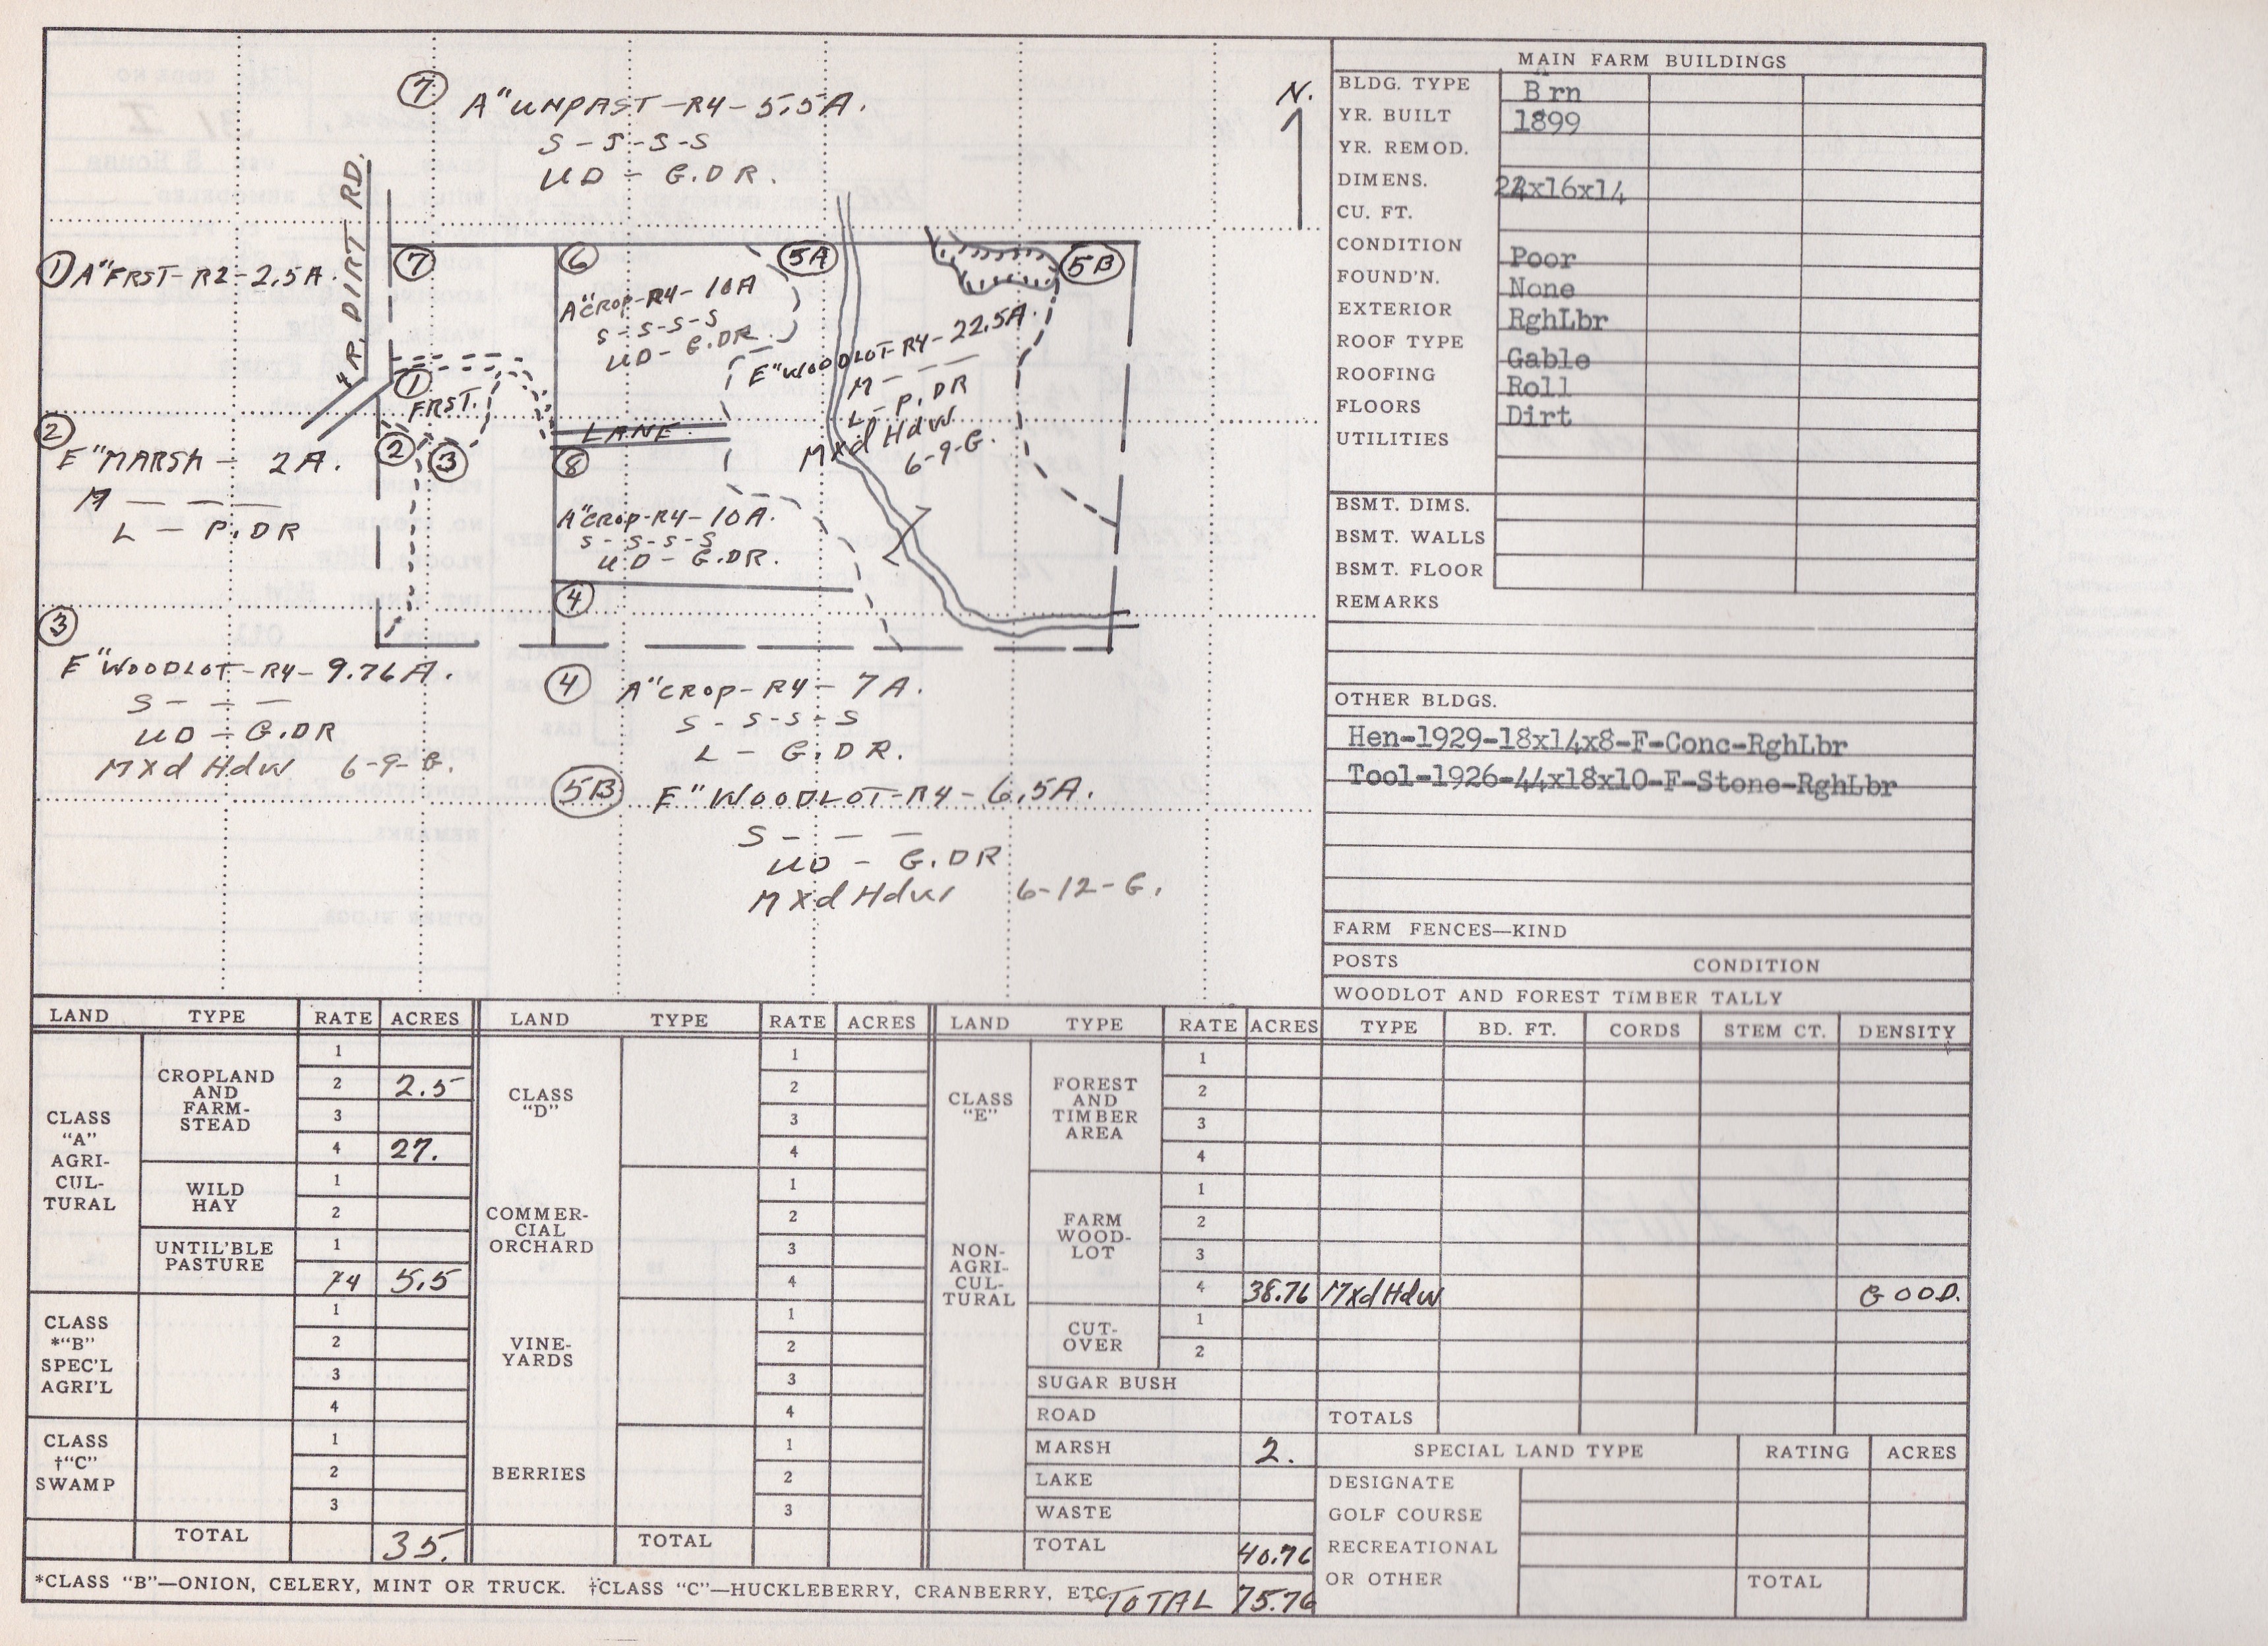 ⑦ A" UNPAST-R4-5.5A.
S-S-S-S
UD-G.DR.
N.
4 R. DIRT RD.
① A" FRST-R2-2.5A.
⑦
⑥
A" CROP-R4-10A
S-S-S-S
UD-G.DR
5A
5B
E" WOODLOT-R4-22.5A.
M — — —
L-P.DR
Mxd Hdw
6-9-G.
①
FRST.
② ③
LANE
⑧
A" CROP-R4-10A.
S-S-S-S
UD-G.DR.
④
②
E" MARSH - 2A.
M — — —
L - P.DR
③
E" WOODLOT-R4-9.76A.
S - — —
UD - G.DR
Mxd Hdw 6-9-G.
④ A" CROP-R4-7A.
S-S-S-S
L - G.DR.
5B E" WOODLOT-R4-6.5A.
S - — —
UD - G.DR
Mxd Hdw 6-12-G.
MAIN FARM BUILDINGS
BLDG. TYPE Brn
YR. BUILT 1899
YR. REMOD.
DIMENS. 24x16x14
CU. FT.
CONDITION Poor
FOUND'N. None
EXTERIOR RghLbr
ROOF TYPE Gable
ROOFING Roll
FLOORS Dirt
UTILITIES
BSMT. DIMS.
BSMT. WALLS
BSMT. FLOOR
REMARKS
OTHER BLDGS.
Hen-1929-18x14x8-F-Conc-RghLbr
Tool-1926-44x18x10-F-Stone-RghLbr
FARM FENCES—KIND
POSTS CONDITION
WOODLOT AND FOREST TIMBER TALLY
LAND TYPE RATE ACRES LAND TYPE RATE ACRES LAND TYPE RATE ACRES TYPE BD. FT. CORDS STEM CT. DENSITY
CLASS "A" AGRI-CUL-TURAL
CROPLAND AND FARM-STEAD
1
2 2.5
3
4 27.
WILD HAY
1
2
UNTIL'BLE PASTURE
1
4 5.5
CLASS *"B" SPEC'L AGRI'L
1
2
3
4
CLASS †"C" SWAMP
1
2
3
TOTAL 35.
CLASS "D"
1
2
3
4
COMMER-CIAL ORCHARD
1
2
3
4
VINE-YARDS
1
2
3
4
BERRIES
1
2
3
TOTAL
CLASS "E"
NON-AGRI-CUL-TURAL
FOREST AND TIMBER AREA
1
2
3
4
FARM WOOD-LOT
1
2
3
4 38.76 Mxd Hdw GOOD.
CUT-OVER
1
2
SUGAR BUSH
ROAD
MARSH 2.
LAKE
WASTE
TOTAL 40.76
TOTALS
SPECIAL LAND TYPE RATING ACRES
DESIGNATE
GOLF COURSE
RECREATIONAL
OR OTHER
TOTAL
*CLASS "B"—ONION, CELERY, MINT OR TRUCK. †CLASS "C"—HUCKLEBERRY, CRANBERRY, ETC. TOTAL 75.76